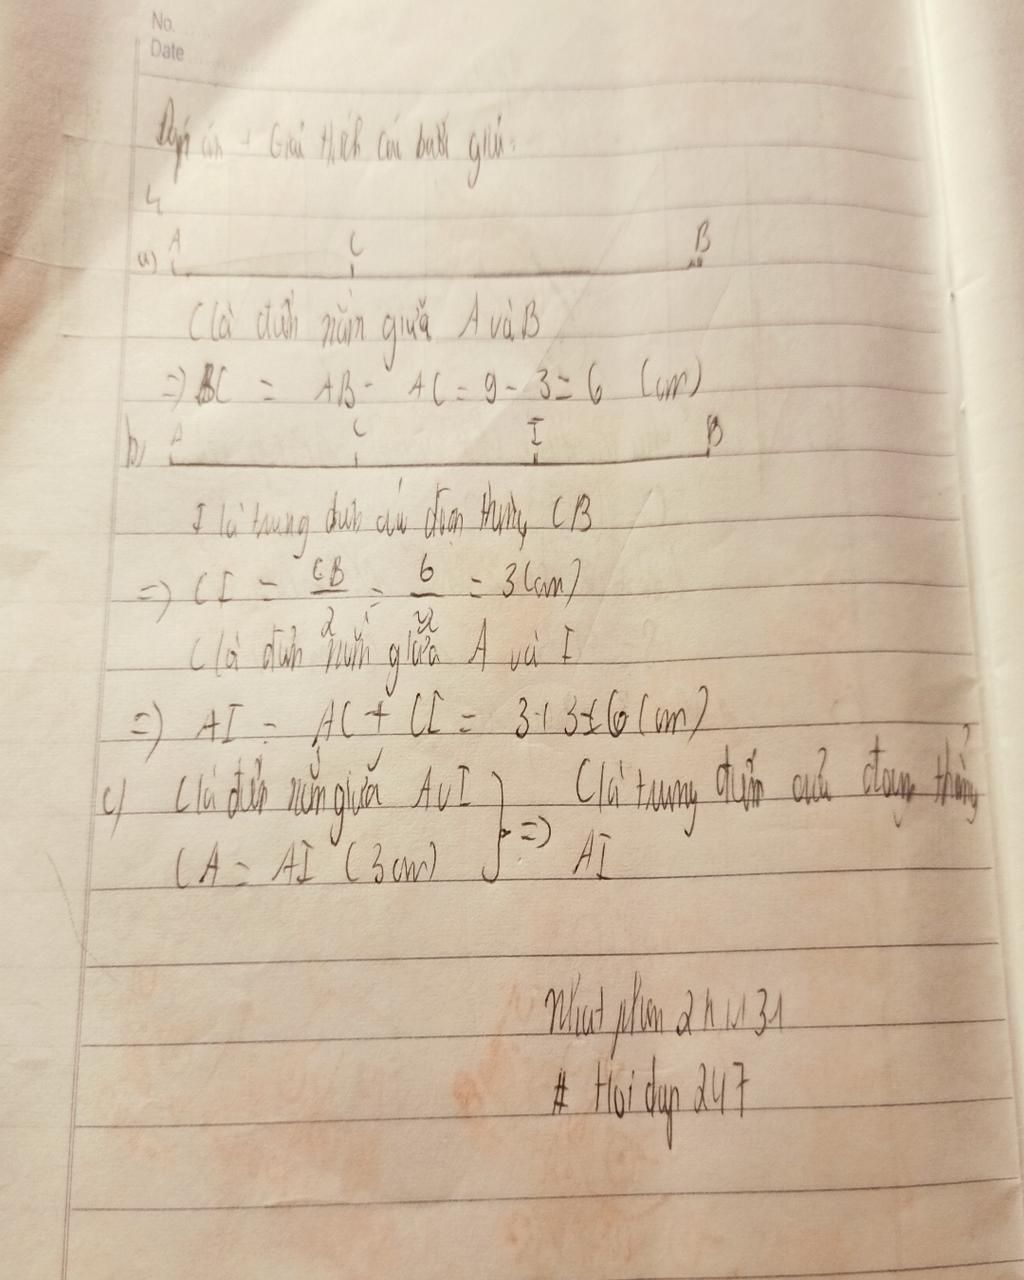 No.
Date
Đáp án + Giải thích các bước giải:
4
A C B
a)
C là điểm nằm giữa A và B
=) BC = AB - AC = 9 - 3 = 6 (cm)
b) A C I B
I là trung điểm của đoạn thẳng CB
=) CI = CB/2 = 6/2 = 3 (cm)
C là điểm nằm giữa A và I
=) AI = AC + CI = 3 + 3 = 6 (cm)
c) C là điểm nằm giữa A và I } =) C là trung điểm của đoạn thẳng
CA = AI (3cm) AI
# Hoidap247